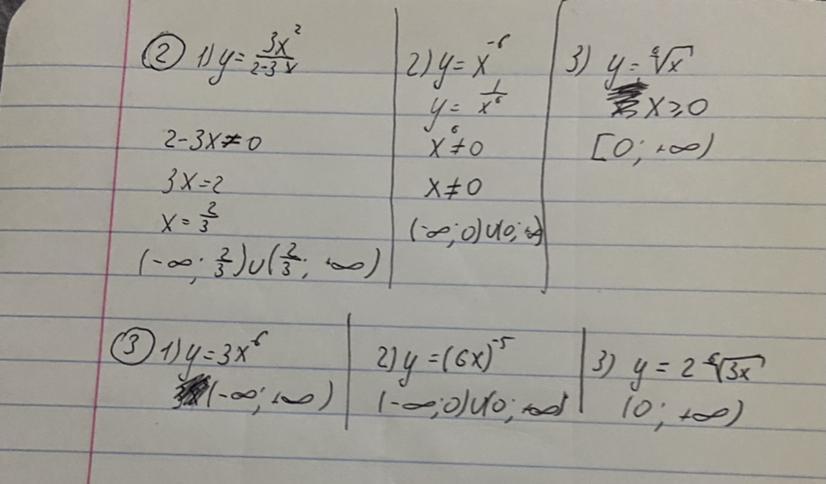 ② 1) y = 3x²/(2-3x)
2-3x≠0
3x=2
x = 2/3
(-∞; 2/3)∪(2/3; +∞)
2) y = x⁻⁶
y = 1/x⁶
x⁶≠0
x≠0
(-∞; 0)∪(0; +∞)
3) y = ⁶√x
x≥0
[0; +∞)
③ 1) y = 3x⁶
(-∞; +∞)
2) y = (6x)⁻⁵
(-∞; 0)∪(0; +∞)
3) y = 2 ⁶√3x
(0; +∞)